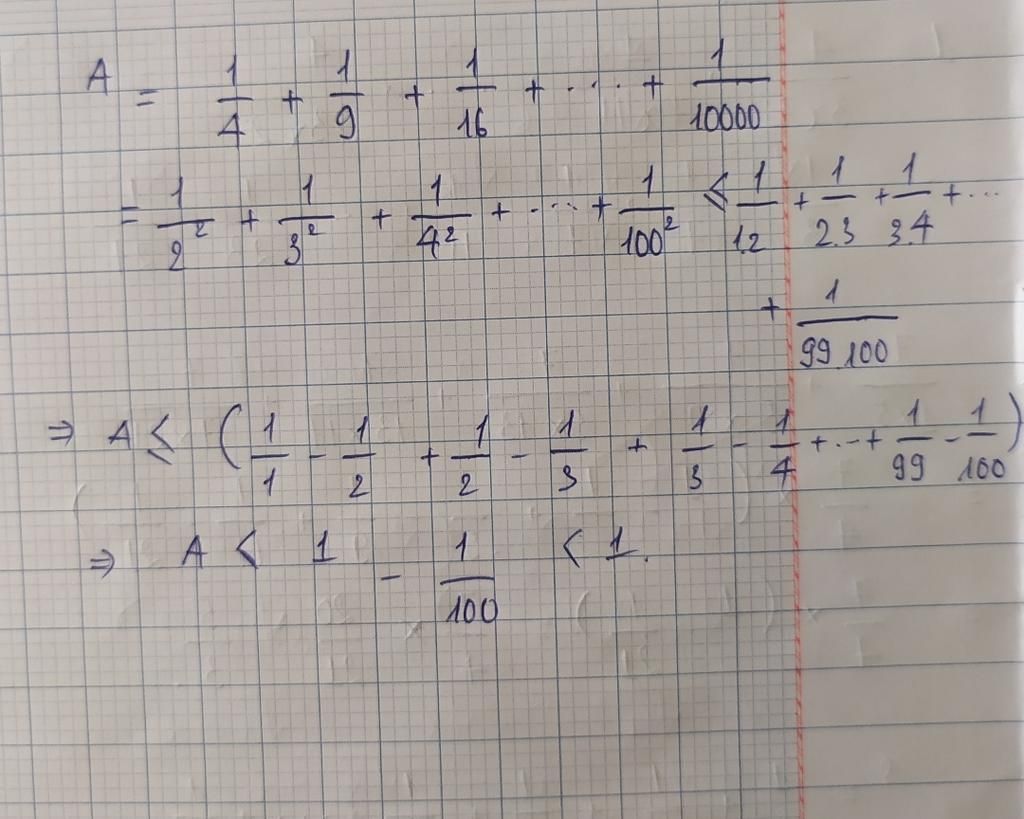 A = 1/4 + 1/9 + 1/16 + ... + 1/10000
= 1/2² + 1/3² + 1/4² + ... + 1/100² ≤ 1/1.2 + 1/2.3 + 1/3.4 + ...
+ 1/99.100
⇒ A ≤ (1/1 - 1/2 + 1/2 - 1/3 + 1/3 - 1/4 + ... + 1/99 - 1/100)
⇒ A < 1 - 1/100 < 1.